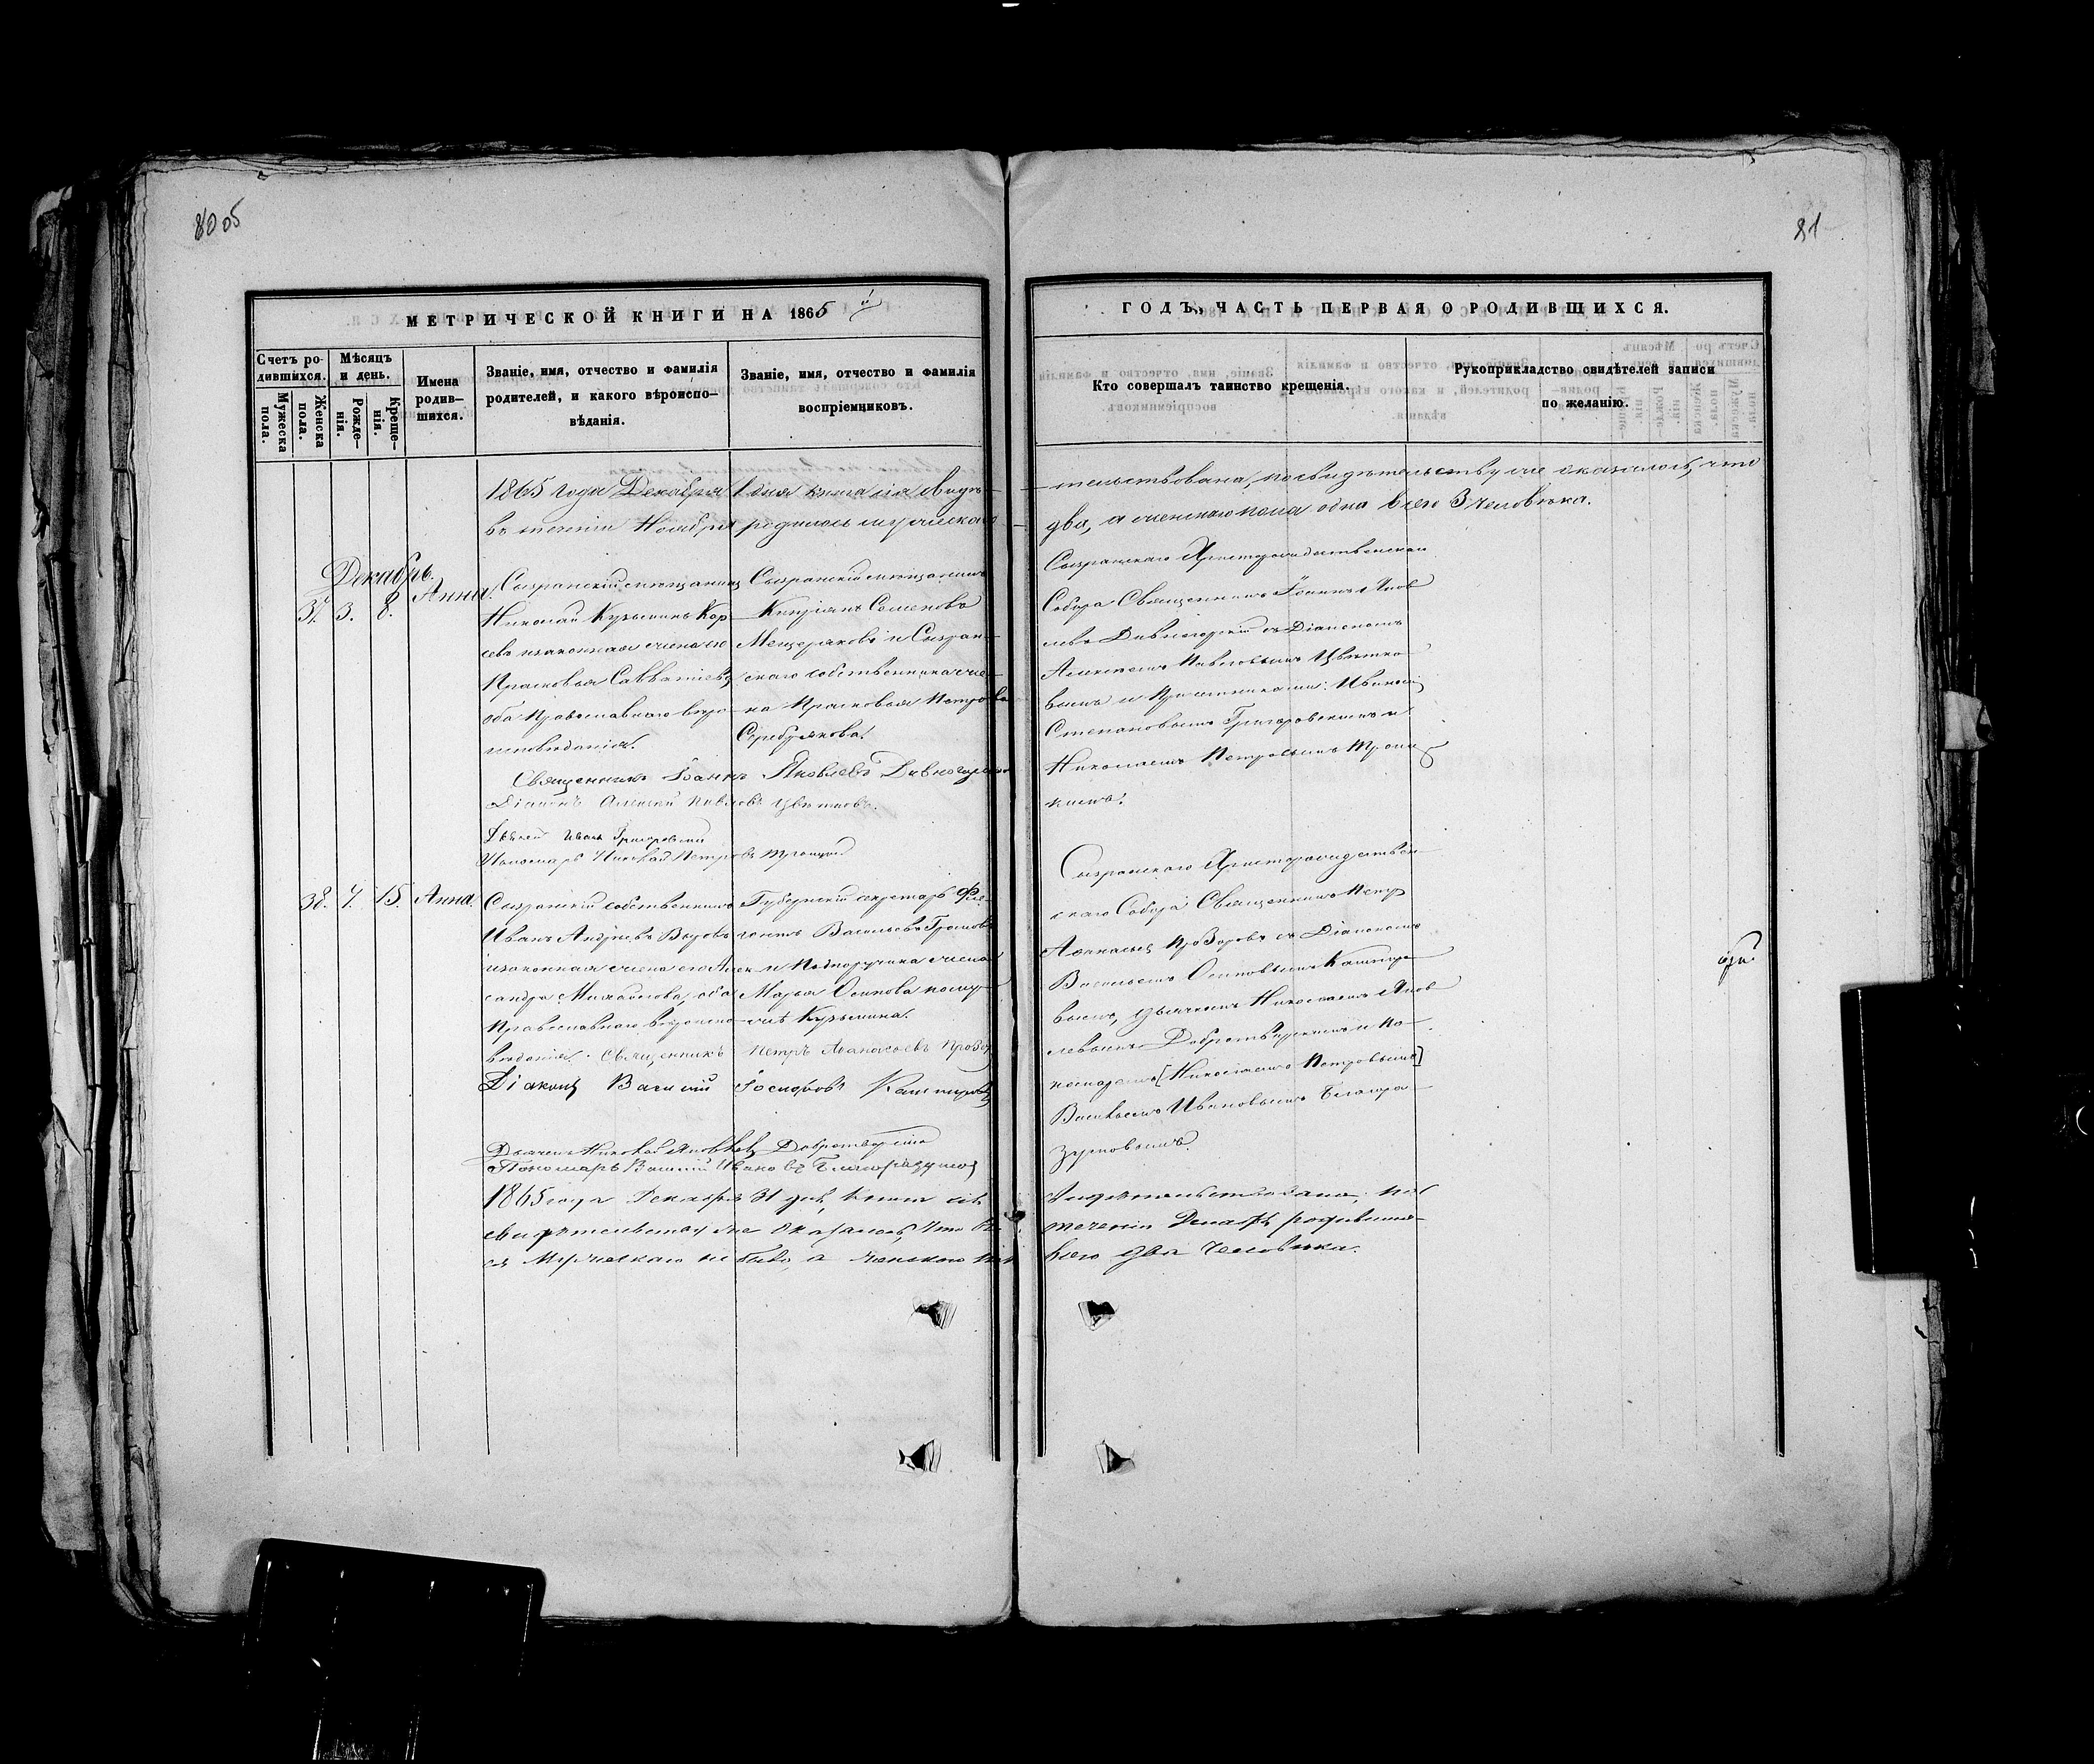 80 об
81
МЕТРИЧЕСКОЙ КНИГИ НА 1865й
ГОДЪ, ЧАСТЬ ПЕРВАЯ О РОДИВШИХСЯ.
Счетъ ро-
дившихся.
Мужеска
пола.
Женска
пола.
Мѣсяцъ
и день.
Рожде-
нія.
Креще-
нія.
Имена
родив-
шихся.
Званіе, имя, отчество и фамилія
родителей, и какого вѣроиспо-
вѣданія.
Званіе, имя, отчество и фамилія
воспріемниковъ.
Кто совершалъ таинство крещенія.
Рукоприкладство свидѣтелей записи
по желанію.
1865 года Декабря 1 дня книга сія свидѣ-
тельствована, по свидѣтельству же оказалось, что
въ теченіи Ноября родилось мужскаго
два, а женскаго пола одна всего 3 человѣка.
Декабрь.
37. 3. 8. Анна.
Сызранскій мѣщанинъ
Николай Кузьминъ Кор-
севъ и законная жена его
Прасковья Савватіева
оба Православнаго вѣро-
исповѣданія.
Сызранскій мѣщанинъ
Кипріянъ Семеновъ
Мещеряковъ и Сызран-
скаго собственника же-
на Прасковья Петрова
Серебрякова.
Сызранскаго Христорождественскаго
Собора Священникъ Іоаннъ Яков
левъ Дивногорскій съ Діакономъ
Алексѣемъ Павловымъ Цвѣтко
вымъ и Причетниками: Иваномъ
Степановымъ Григоровскимъ и
Николаемъ Петровымъ Троиц
кимъ.
Священникъ Іоаннъ Яковлевъ Дивногорскій
Діаконъ Алексѣй Павловъ Цвѣтковъ.
Иванъ Григоровскій
Пономарь Николай Петровъ Троицкій
38. 7. 15. Анна.
Сызранскій собственникъ
Иванъ Андреевъ
и законная жена его Алек
сандра Михайлова, оба
Православнаго вѣроиспо-
вѣданія.
Губернскій секретарь
Васильевъ Громовъ
и Подпоручика жена
Марья Осипова
Кузьмина.
Сызранскаго Христорождествен
скаго Собора Священникъ Петръ
Аѳанасьевъ Прозоровъ съ Діакономъ
Васильемъ Осиповымъ Кашкиро
вымъ, дьячкомъ Николаемъ Яков
левымъ Добротворскимъ и По-
номаремъ [Николаемъ Петровымъ]
Васильемъ Ивановымъ Благора
зумовымъ.
Священникъ Петръ Аѳанасьевъ Прозор
Діаконъ Василій Іосифовъ
Дьячекъ Николай Яковлевъ Добротворскій
Пономарь Василій Ивановъ Благоразумовъ
1865 года Декабря 31 дня, книга сія
свидѣтельствована, по
свидѣтельству же оказалось, что въ
теченіи Декабря родивших-
ся Мужескаго не было, а женскаго
всего два человѣка.